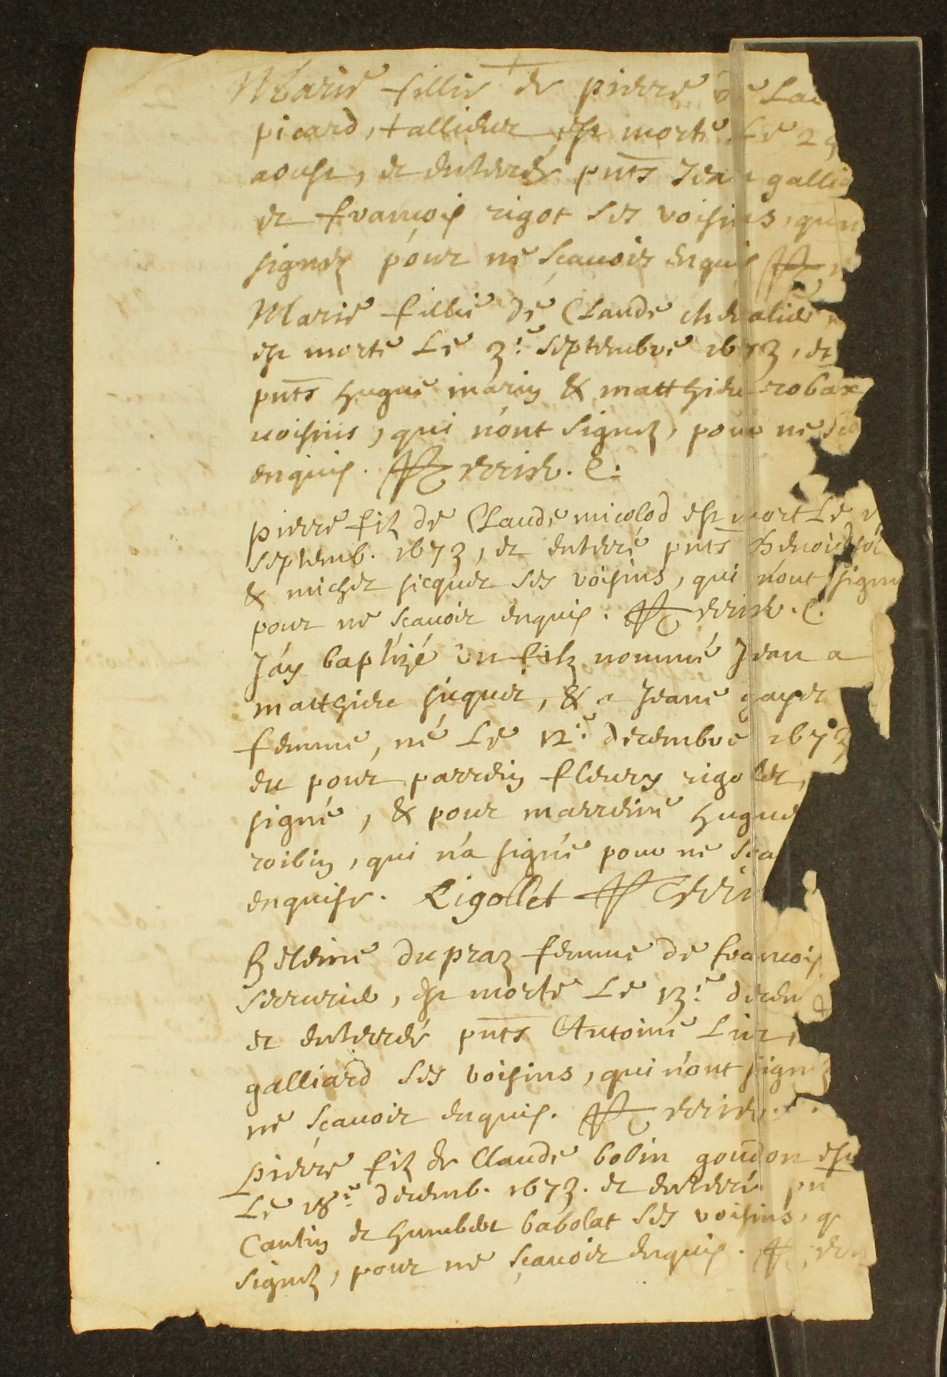 Marie fillie de pierre de La
picard, tallieur est morte Le 29
aoust, et enterrée pnts Jean galli
et francois rigot ses voisins, qui n
signez pour ne sçauoir enquis
Marie fillie de Claude cheualier
est morte Le 3.e septembre 1673, et
pnts hugue marin & matthieu robax
uoisins, qui n'ont signez, pour ne sca
enquis.
pierre filz de Claude micolod est mort Le
septemb. 1673, et enterré pnts benoist
& michet sicquet ses voisins, qui n'ont signe
pour ne scauoir enquis.
J'ay baptizé un filz nommé Jean a
matthieu siquet, & a Jeane gayet
femme, né Le 12.e decembre 1673
eu pour parrein fleury rigolet,
signé, & pour marreine hugue
roibin, qui n'a signé pour ne sca
enquise. Rigollet
heleine dupraz femme de francois
serrurier, est morte Le 13.e decem
et enterrée pnts Antoine
galliard ses voisins, qui n'ont signez
ne sçauoir enquis.
pierre filz de Claude bobin goudon est
Le 18.e decemb. 1673. et enterré pn
Cantin et humbert babolat ses voisins, q
signez, pour ne sçauoir enquis.